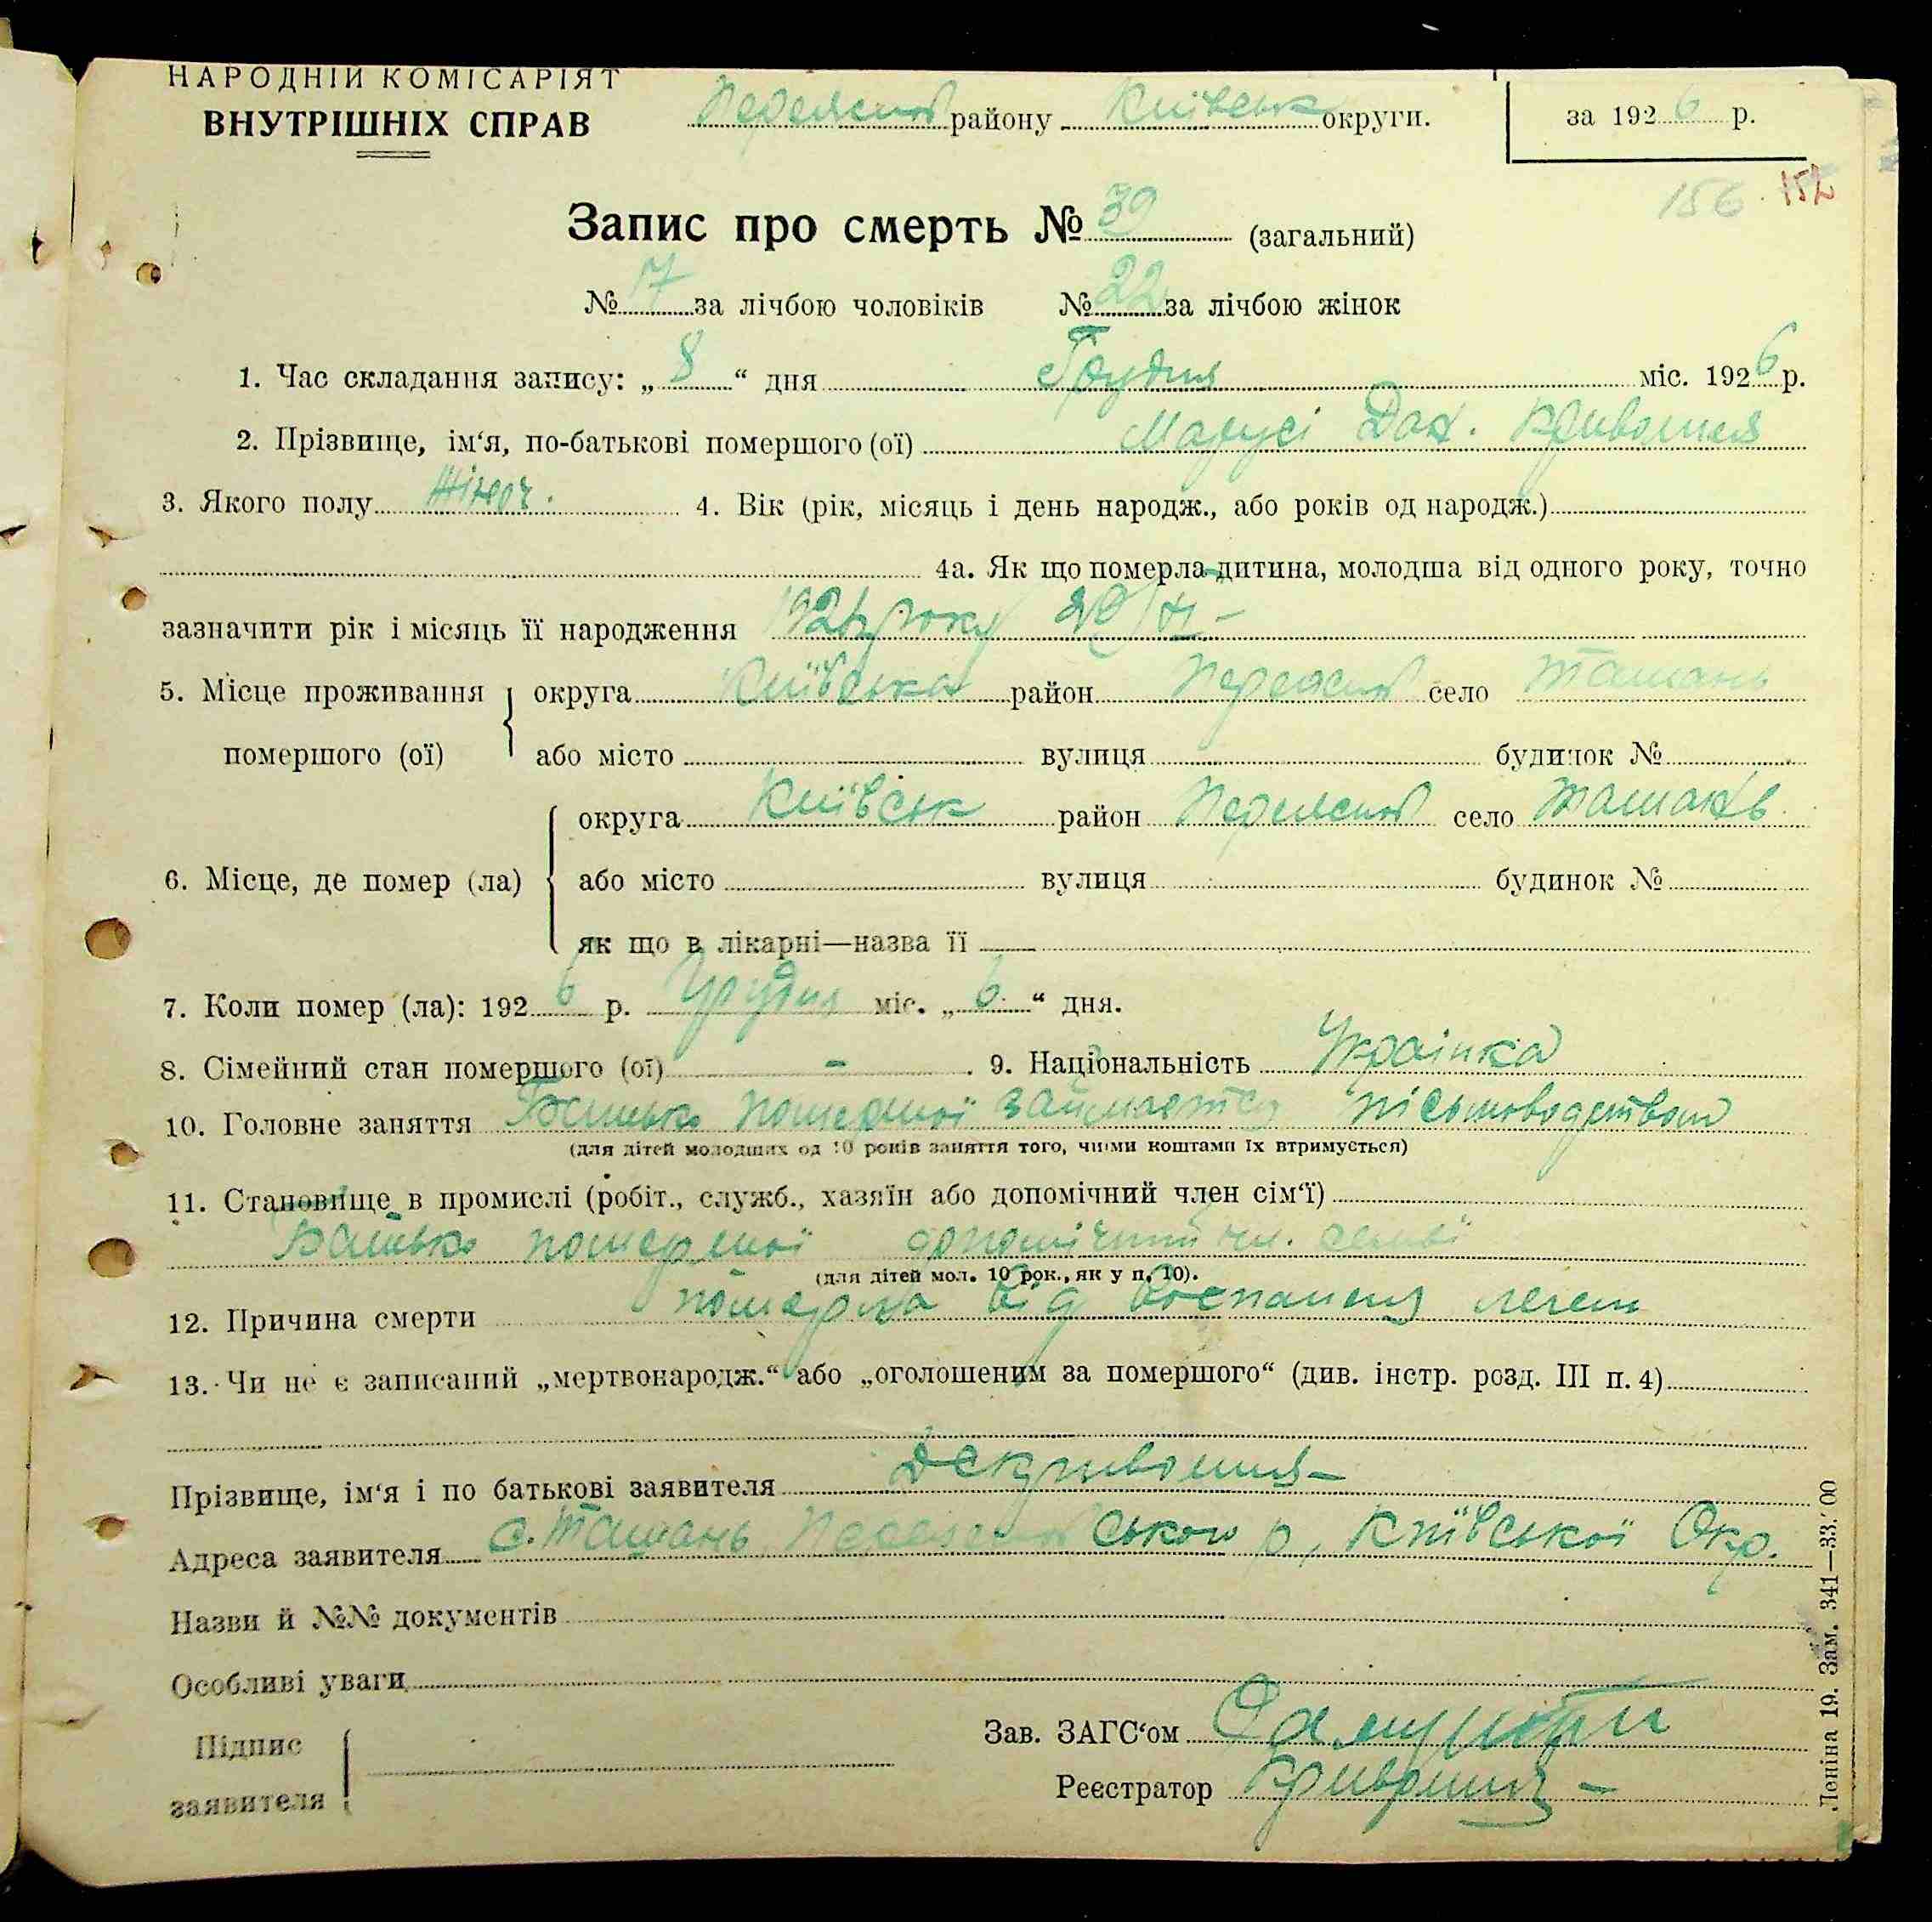 НАРОДНІЙ КОМІСАРІЯТ
ВНУТРІШНІХ СПРАВ
району Київськ округи.
за 1926 р.
156 152
Запис про смерть № 39 (загальний)
№ 17 за лічбою чоловіків № 22 за лічбою жінок
1. Час складання запису: „ 8 “ дня Грудня міс. 1926 р.
2. Прізвище, ім‘я, по-батькові помершого (ої) Марусі Кривошия
3. Якого полу Жіноч. 4. Вік (рік, місяць і день народж., або років од народж.)
4а. Як що померла дитина, молодша від одного року, точно
зазначити рік і місяць її народження року
5. Місце проживання помершого (ої) округа Київська район село Ташань
або місто вулиця будинок №
6. Місце, де помер (ла) округа Київськ район село Ташань
або місто вулиця будинок №
як що в лікарні—назва її
7. Коли помер (ла): 1926 р. Грудня міс. „ 6 “ дня.
8. Сімейний стан помершого (ої) - . 9. Національність Украінка
10. Головне заняття Батько помершої займается пісьмоводством
(для дітей молодших од 10 років заняття того, чиїми коштами їх втримується)
11. Становище в промислі (робіт., служб., хазяїн або допомічний член сім‘ї)
Батько помершої допомічний чл. семьї
(для дітей мол. 10 рок., як у п. 10).
12. Причина смерти померла від воспаления легень
13. Чи не є записаний „мертвонародж.“ або „оголошеним за помершого“ (див. інстр. розд. III п. 4)
Прізвище, ім‘я і по батькові заявителя
Адреса заявителя с. Ташань ського р, Київської Окр.
Назви й №№ документів
Особливі уваги
Підпис заявителя
Зав. ЗАГС‘ом
Реєстратор Кривошия
Леніна 19. Зам. 341—33.000